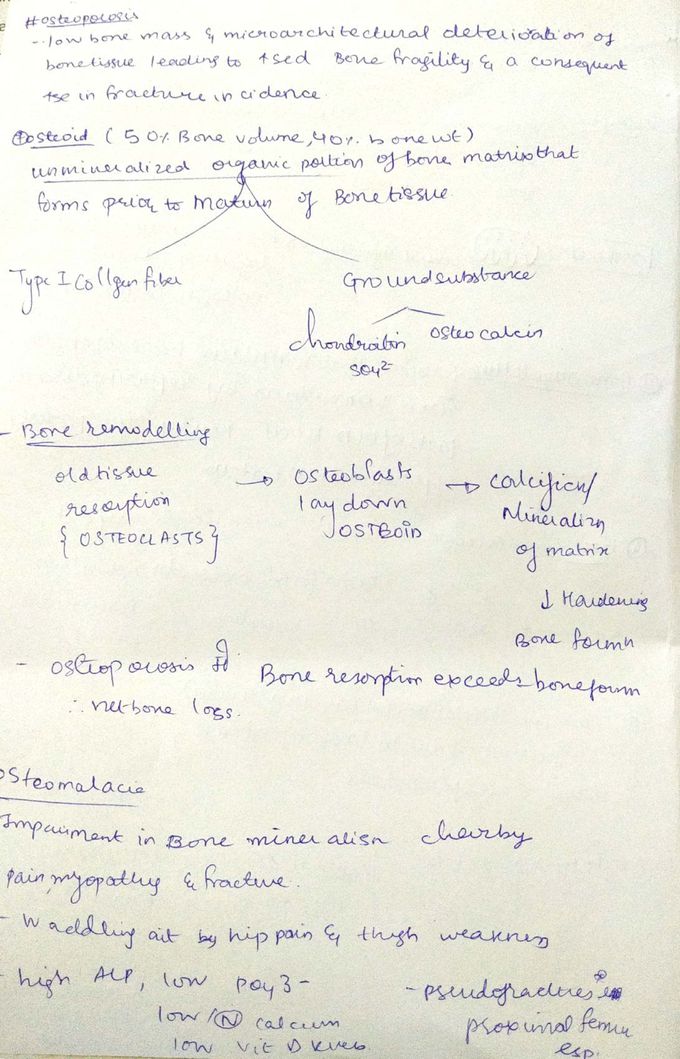 #osteoporosis
- low bone mass & microarchitectural deterioration of
bone tissue leading to ↑sed Bone fragility & a consequent
↑se in fracture incidence.
osteoid (50% Bone volume, 40% bone wt)
unmineralized organic portion of bone matrix that
forms prior to maturn of Bone tissue.
Type I Collgen fiber Ground substance
chondroitin osteocalcin
SO4²⁻
- Bone remodelling
old tissue → osteoblasts → calcificn/
resorption lay down Mineralizn
{OSTEOCLASTS} OSTEOID of matrix
↓ Hardening
Bone formn
- osteoporosis Bone resorption exceeds bone formn
∴ net bone loss.
Osteomalacia
Impairment in Bone mineralisn charby
pain, myopathy & fracture.
- Waddling ait by hip pain & thigh weakness
- high ALP, low po43- - pseudofractures in
low/(N) calcium proximal femur
low vit D levels esp.